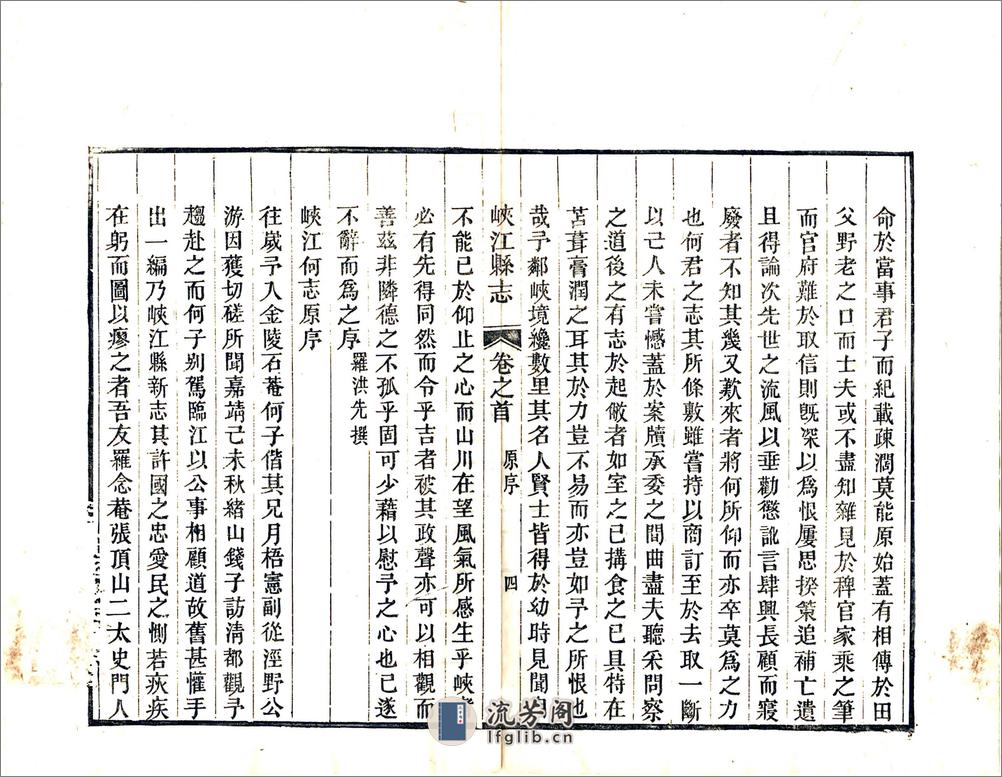 命於當事君子而紀載疎濶莫能原始蓋有相傳於田
父野老之口而士夫或不盡知雜見於稗官家乘之筆
而官府難於取信則旣深以爲恨屢思揆策追補亡遺
且得論次先世之流風以垂勸懲訛言肆興長顧而寢
廢者不知其幾又歎來者將何所仰而亦卒莫爲之力
也何君之志其所條數雖嘗持以商訂至於去取一斷
以己人未嘗憾蓋於案牘承委之間曲盡夫聽采問察
之道後之有志於起敝者如室之已搆食之已具特在
苫葺膏潤之耳其於力豈不易而亦豈如予之所恨也
哉予鄰峽境纔數里其名人賢士皆得於幼時見聞
峽江縣志 卷之首 原序 四
不能已於仰止之心而山川在望風氣所感生乎峽
必有先得同然而令乎吉者被其政聲亦可以相觀而
善茲非隣德之不孤乎固可少藉以慰予之心也已遂
不辭而爲之序 羅洪先撰
峽江何志原序
往歲予入金陵石菴何子偕其兄月梧憲副從涇野公
游因獲切磋所聞嘉靖己未秋緒山錢子訪淸都觀予
趨赴之而何子别駕臨江以公事相顧道故舊甚懽手
出一編乃峽江縣新志其許國之忠愛民之惻若疢疾
在躬而圖以瘳之者吾友羅念菴張頂山二太史門人
流芳阁
lfglib.cn